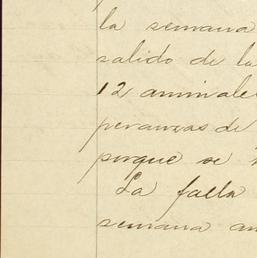 la semana
salido de la
12 animale
peranzas de
porque se
La falla
semana an